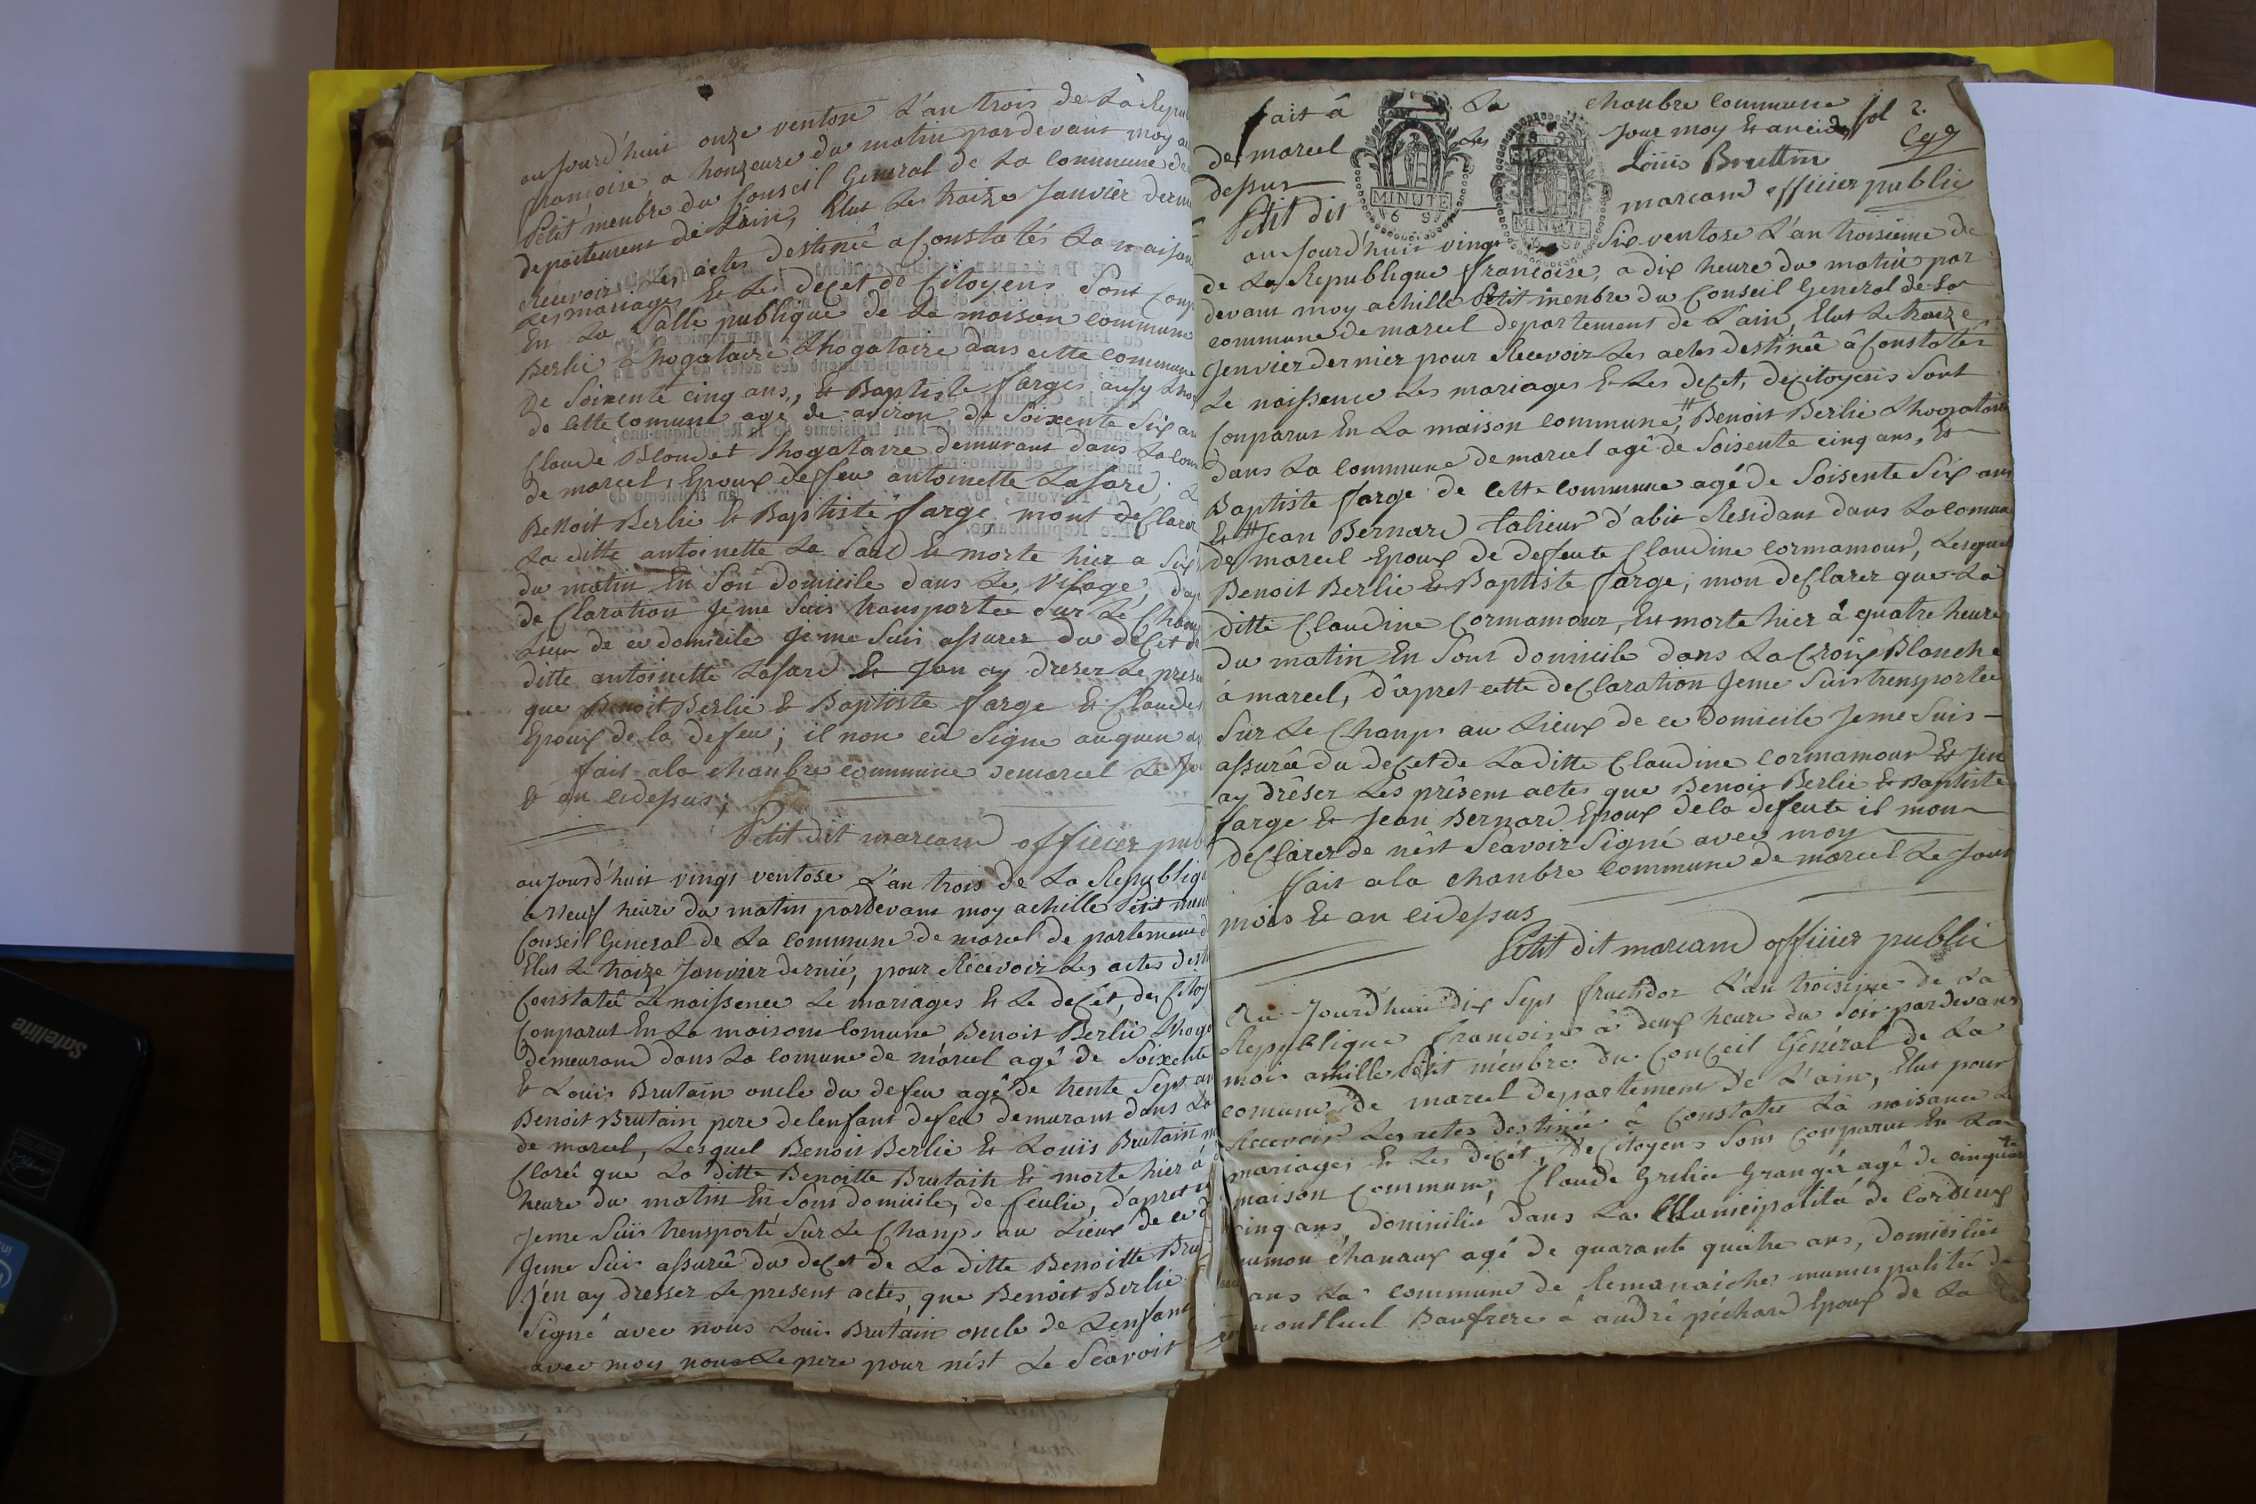 aujourd'huit onze ventose L'an trois de La Repu
françoise, a honzeure du matin pardevant moy a
Petit menbre du Conseil General de La commune de
departement de L'ain, Elut Les traize Janvier derni
Recevoir Les actes destinée a Constatés La naisan
Les mariages Et Les decet de Citoyens Sont Conp
En La Salle publique de La maison commune
Berlie Lhogataire Lhogataire dans cette commune
De Soixente cinq ans, Et Baptiste farges ausy Lhog
de Cette Comune age de aviron de Soixente Six an
Claude Blondet Lhogataire demurant dans La Com
de marcel, Epoux defeu antoinette Lasare, L
Benoit Berlie Et Baptiste farge, mont declarer
La ditte antoinette La Sard Et morte hier a Six
du matin En Son domicile dans Le Vilage, d'ap
de Claration Je me Suis transportée Sur Le Chanp
Lieu de ce domicile Je me Suis assurer du decet de
ditte antoinette Lasard Et Jan ay dreser Le prese
que Benoit Berlie Et Baptiste farge Et Claude
Epoux de la defeu; il non eu Signe auquen
fait ala chanbre commune demarcel Le Jo
Et an cidessus;
Petit dit marcand officier pub
aujourd'huit vingt ventose L'an trois de La Republiq
a Neuf heure du matin pardevant moy achille Petit men
Conseil General de La commune de marcel departement d
Elut Le traize Janvier dernié, pour Recevoir Les actes dest
Constatée Le naissence Le mariages Et Le decet, des Citoy
Conparut En La maisone Comune Benoit Berlie Lhoga
demeurand dans La comune de marcel agé de Soixente
Et Louis Brutain oncle du defeu agé de trente Sept an
Benoit Brutain pere delenfant defeu demurant dans La
de marcel, Lesquel Benoit Berlie Et Louis Brutain m
Clarée que La ditte Benoitte Brutain Et morte hier à
heure du matin En Son domicile, de feulie, d'apret
Jeme Suis trensporté Sur Le Chanps au Lieux de ce d
Jeme Suis assurée du decet de La ditte Benoitte Bru
J'en ay dresser Le present actes, que Benoit Berlie
Signé avec nous Louis Brutain oncle de Lenfant
avec moy nous Le pere pour nést Le Scavoir
fait à La chanbre commune fol 2.
de marcel Les Jour moy Et an cide
dessus Louis Bruttin
Petit dit marcand officier public
MINUTE
MINUTE
aujourd'huit vingt Six ventose L'an troisieme de
de La Republique françoise, a dix heure du matin par
devant moy achille Petit menbre du Conseil General de La
commune de marcel departement de L'ain, Elut Le traize
Jenvier dernier pour Recevoir Les actes destinée à Constatér
Le naissence Les mariages Et Les decet, decitoyens Sont
Conparut En La maison commune, # Benoit Berlie Lhogataire
dans La Commune de marcel agé de Soisente cinq ans, Et
Baptiste farge de Cette commune agé de Soisente Six ans
Et # Jean Bernard talieur d'abit Residant dans La comun
de marcel Epoux de defeute Claudine Cormamour, Lesquel
Benoit Berlie Et Baptiste farge, mon declarer que La
ditte Claudine Cormamour, Est morte hier à quatre heure
du matin En Sont domicile dans La Croix Blanche
à marcel, d'apret cette declaration Jeme Suis trensportée
Sur Le Chanps au Lieux de ce domicile Jeme Suis
assurée du decet de Laditte Claudine Cormamour Et Jen
ay dréser Les présent actes que Benoit Berlie Et Baptiste
farge Et Jean Bernard Epoux dela defeute il mon
declarer de nést Scavoir Signé avec moy
fait ala chanbre commune de marcel Le Jour
mois Et an cidessus
Petit dit marcand officier public
Au Jourd'hui dix Sept fructidor L'an troisième de La
Republique françoise à deux heure du Soir pardevant
moi achille Petit ménbre du Conceil Général de La
comune de marcel departement de L'ain, Elut pour
Recevoir Les actes destinée à Constater La naisance Le
mariages Et Les décet, de Citoyens Sont Conparut En La
maison Commune, Claude Grelie Grangér agé de cinquante
cinq ans, domicilié dans La Municipalité de Cordieux
chanaux agé de quarante quatre ans, domicilié
ans La commune de municipalité de
montluel Baufrere à andré pichard Epoux de La